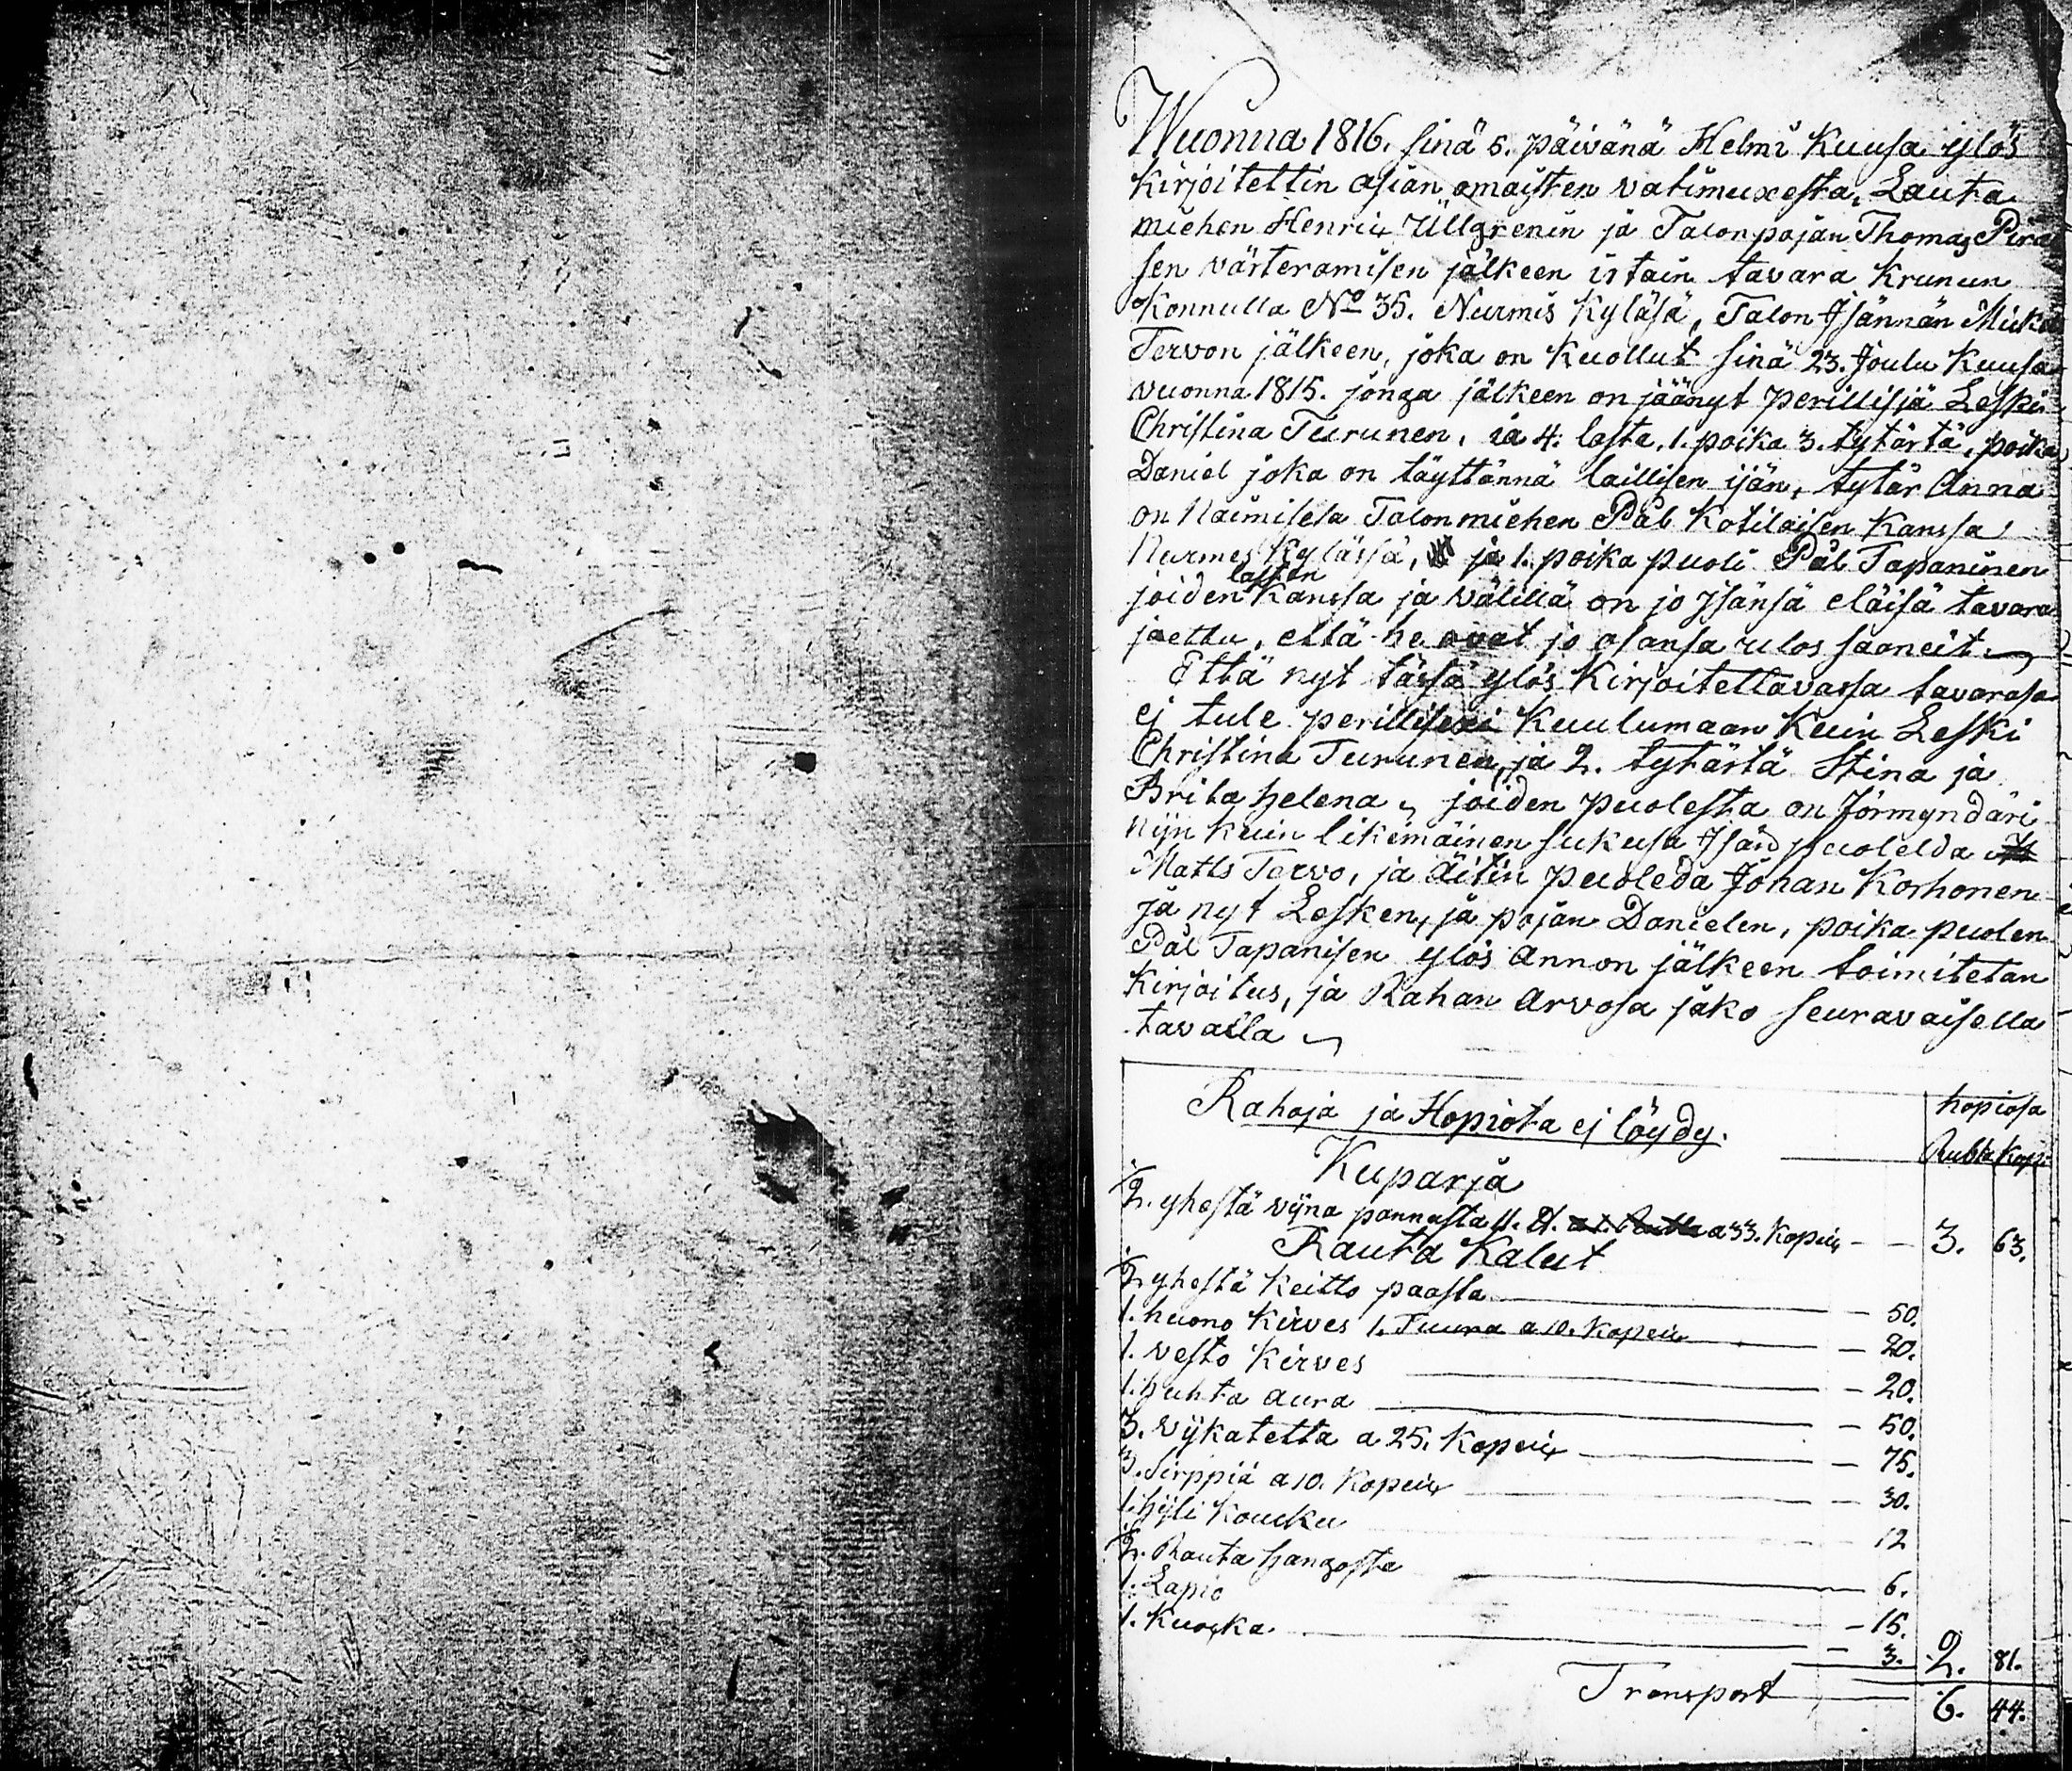 Wuonna 1816. sinä 5. päivänä Helmi Kuusa ylös
Kirjoitettin asian omaisten vatimuxesta, Lauta
miehen Henric Ullgrenin ja Talonpojan Thomas Pira
sen värteramisen jälkeen irtain tavara Krunun
Konnulla No 35. Nurmis Kyläsä, Talon Isännän Mickel
Tervon jälkeen, joka on Kuollut sinä 23. Joulu Kuusa
vuonna 1815. jonga jälkeen on jäänyt perillisjä Leski
Christina Turunen, ia 4. lasta, 1. poika 3. tytärtä, poika
Daniel joka on täyttännä laillisen ijän, tytär Anna
on Naimisesa Talonmiehen Pål Kotilaisen Kanssa
Nurmes Kylässä, ja 1. poika puoli Pål Tapaninen
joiden lasten Kanssa ja välillä on jo Isänsä eläisä tavara
jaettu, että he ovat jo osansa ulos saaneit
Että nyt tässä ylös Kirjoitettavassa tavarasa
ej tule perillisexi Kuulumaan Kuin Leski
Christina Turunen, ja 2. tytärtä Stina ja
Brita helena, joiden puolesta on förmyndäri
nijn kuin likemäinen sukusa Isän puolelda
Matts Tervo, ja äitin puoleda Johan Korhonen
ja nyt Lesken, ja pojan Danielen, poika puolen
Pål Tapanisen ylös annon jälkeen toimitetan
Kirjoitus, ja Rahan arvosa jako seuravaisella
tavalla
hopiosa
Rahoja ja Hopiota ej löydy.
Rubla Kop.
Kuparja
1/2. yhestä vijna pannusta 11. ℔. a 33. Kopeix 3. 63.
Rauta Kalut
1/2 yhestä Keitto paasta 50.
1. huono Kirves 1. Tuura a 10. Kopeix 20.
1. vesto Kirves 20.
1. huhta aura 50.
3. vijkatetta a 25. Kopeix 75.
3. Sirppiä a 10. Kopeix 30.
1. hijli Koucku 12
1/2. Rauta hangosta 6.
1. Lapio 15.
1. Kuocka 3. 2. 81.
Transport 6. 44.